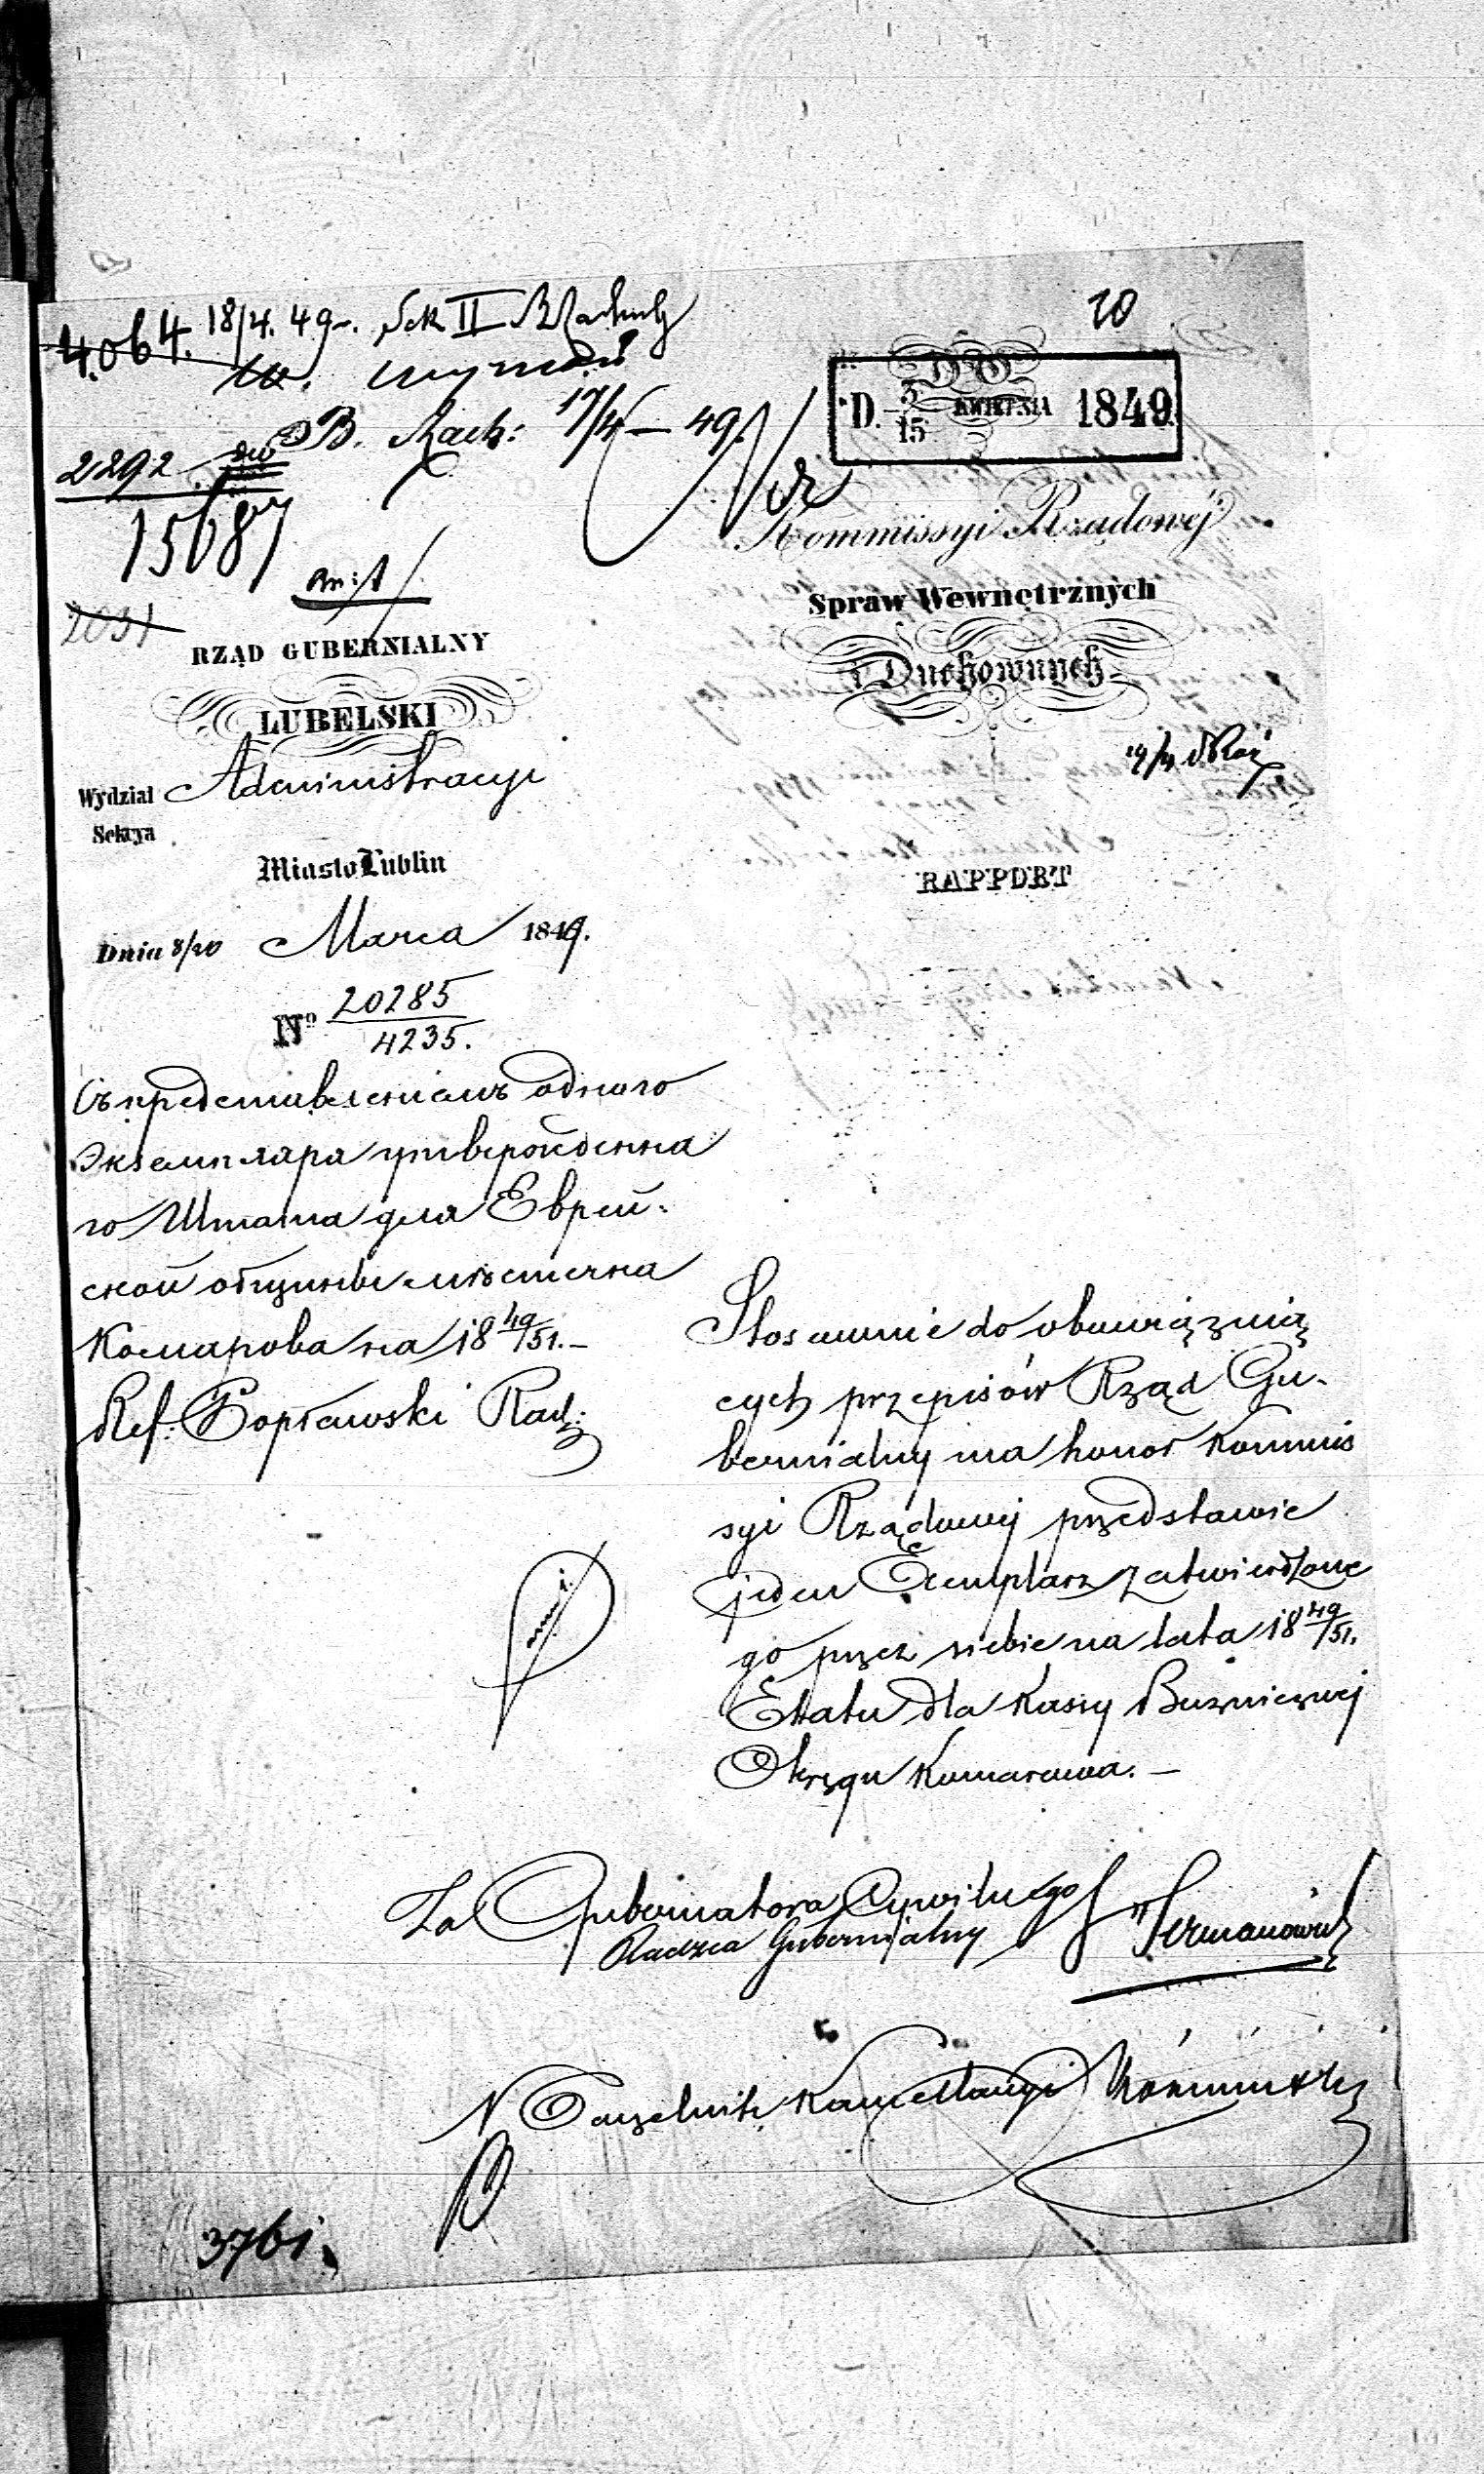 20
4064. 18/4. 49 r. Sek II
B. Rach: 17/4 — 49.
2292
15687
2031
DO
D. 3/15 KWIETNIA 1849.
Kommissyi Rządowéj
Spraw Wewnętrznych
i Duchownych
RAPPORT
RZĄD GUBERNIALNY
LUBELSKI
Wydział Administracyi
Sekcya
Miasto Lublin
Dnia 8/20 Marca 1849.
No 20285/4235.
Съ представленіемъ одного
Экземпляра утвержденна
го Штата для Еврей-
ской общины мѣстечка
Комарова на 18 49/51. –
Ref: Popławski Rad:
Stosownie do obowiązują
cych przepisów Rząd Gu-
bernialny ma honor Kommis
syi Rządowej przedstawić
jeden Exemplarz zatwierdzone
go przez siebie na lata 18 49/51.
Etatu dla Kassy Bużniczej
Okręgu Komarowa. –
Za Gubernatora Cywilnego
Radzca Gubernialny
Naczelnik Kancellaryi
3761.